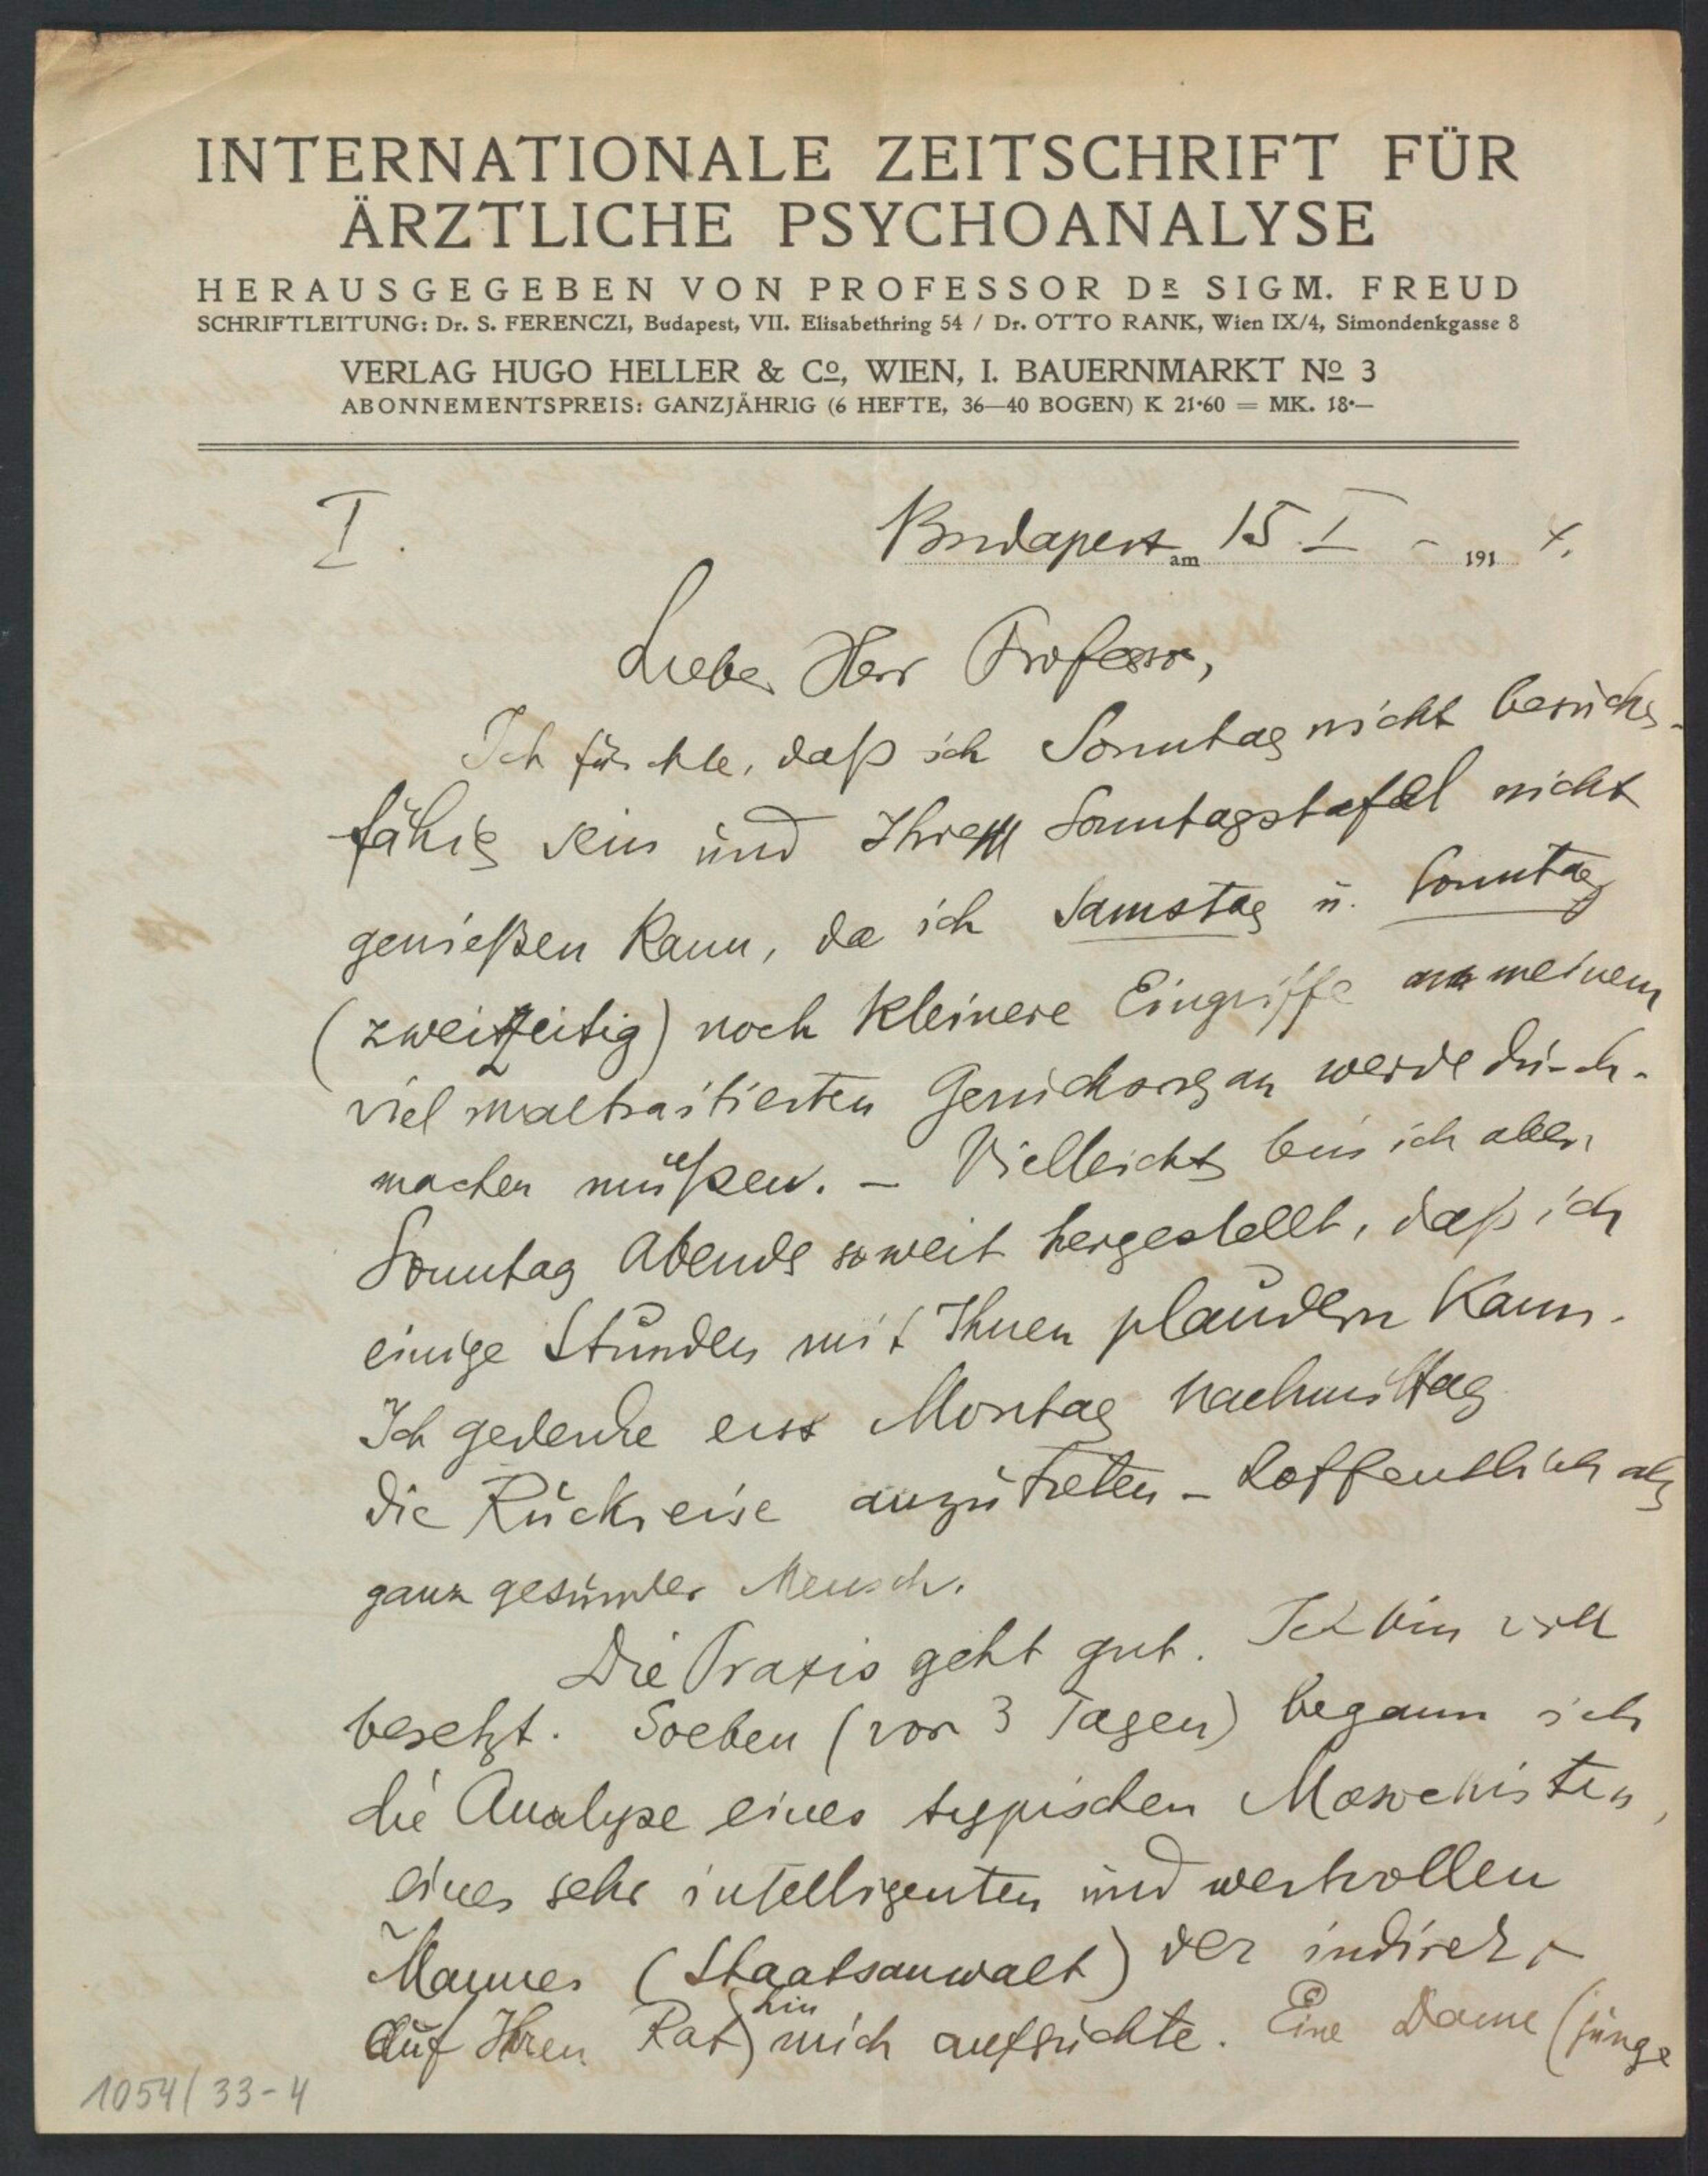 INTERNATIONALE ZEITSCHRIFT FÜR
ÄRZTLICHE PSYCHOANALYSE
HERAUSGEGEBEN VON PROFESSOR DR SIGM. FREUD
SCHRIFTLEITUNG: Dr. S. FERENCZI, Budapest, VII. Elisabethring 54 / Dr. OTTO RANK, Wien IX/4, Simondenkgasse 8
VERLAG HUGO HELLER & Co, WIEN, I. BAUERNMARKT No 3
ABONNEMENTSPREIS: GANZJÄHRIG (6 HEFTE, 36—40 BOGEN) K 21·60 = MK. 18·—
I. Budapest am 15. I - 191 4.
Lieber Herr Professor,
Ich fürchte, daß ich Sonntag nicht besuchs-
fähig sein und Ihre Sonntagstafel nicht
genießen kann, da ich Samstag u. Sonntag
(zweizeitig) noch kleinere Eingriffe an meinem
viel maltraitierten Geruchorgan werde durch-
machen müßen. – Vielleicht bin ich aber
Sonntag Abends soweit hergestellt, daß ich
einige Stunden mit Ihnen plaudern kann.
Ich gedenke erst Montag Nachmittag
die Rückreise anzutreten – hoffentlich als
ganz gesunder Mensch.
Die Praxis geht gut. Ich bin voll
besetzt. Soeben (vor 3 Tagen) begann ich
die Analyse eines typischen Masochisten,
eines sehr intelligenten und wertvollen
Mannes (Staatsanwalt) der indirekt
auf Ihren Rat hin mich aufsuchte. Eine Dame (junge
1054/33-4